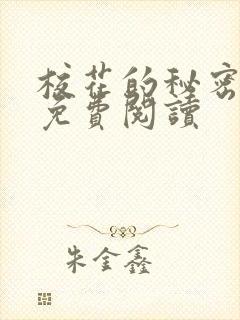 校花的秘密
免費閱讀
朱金鑫